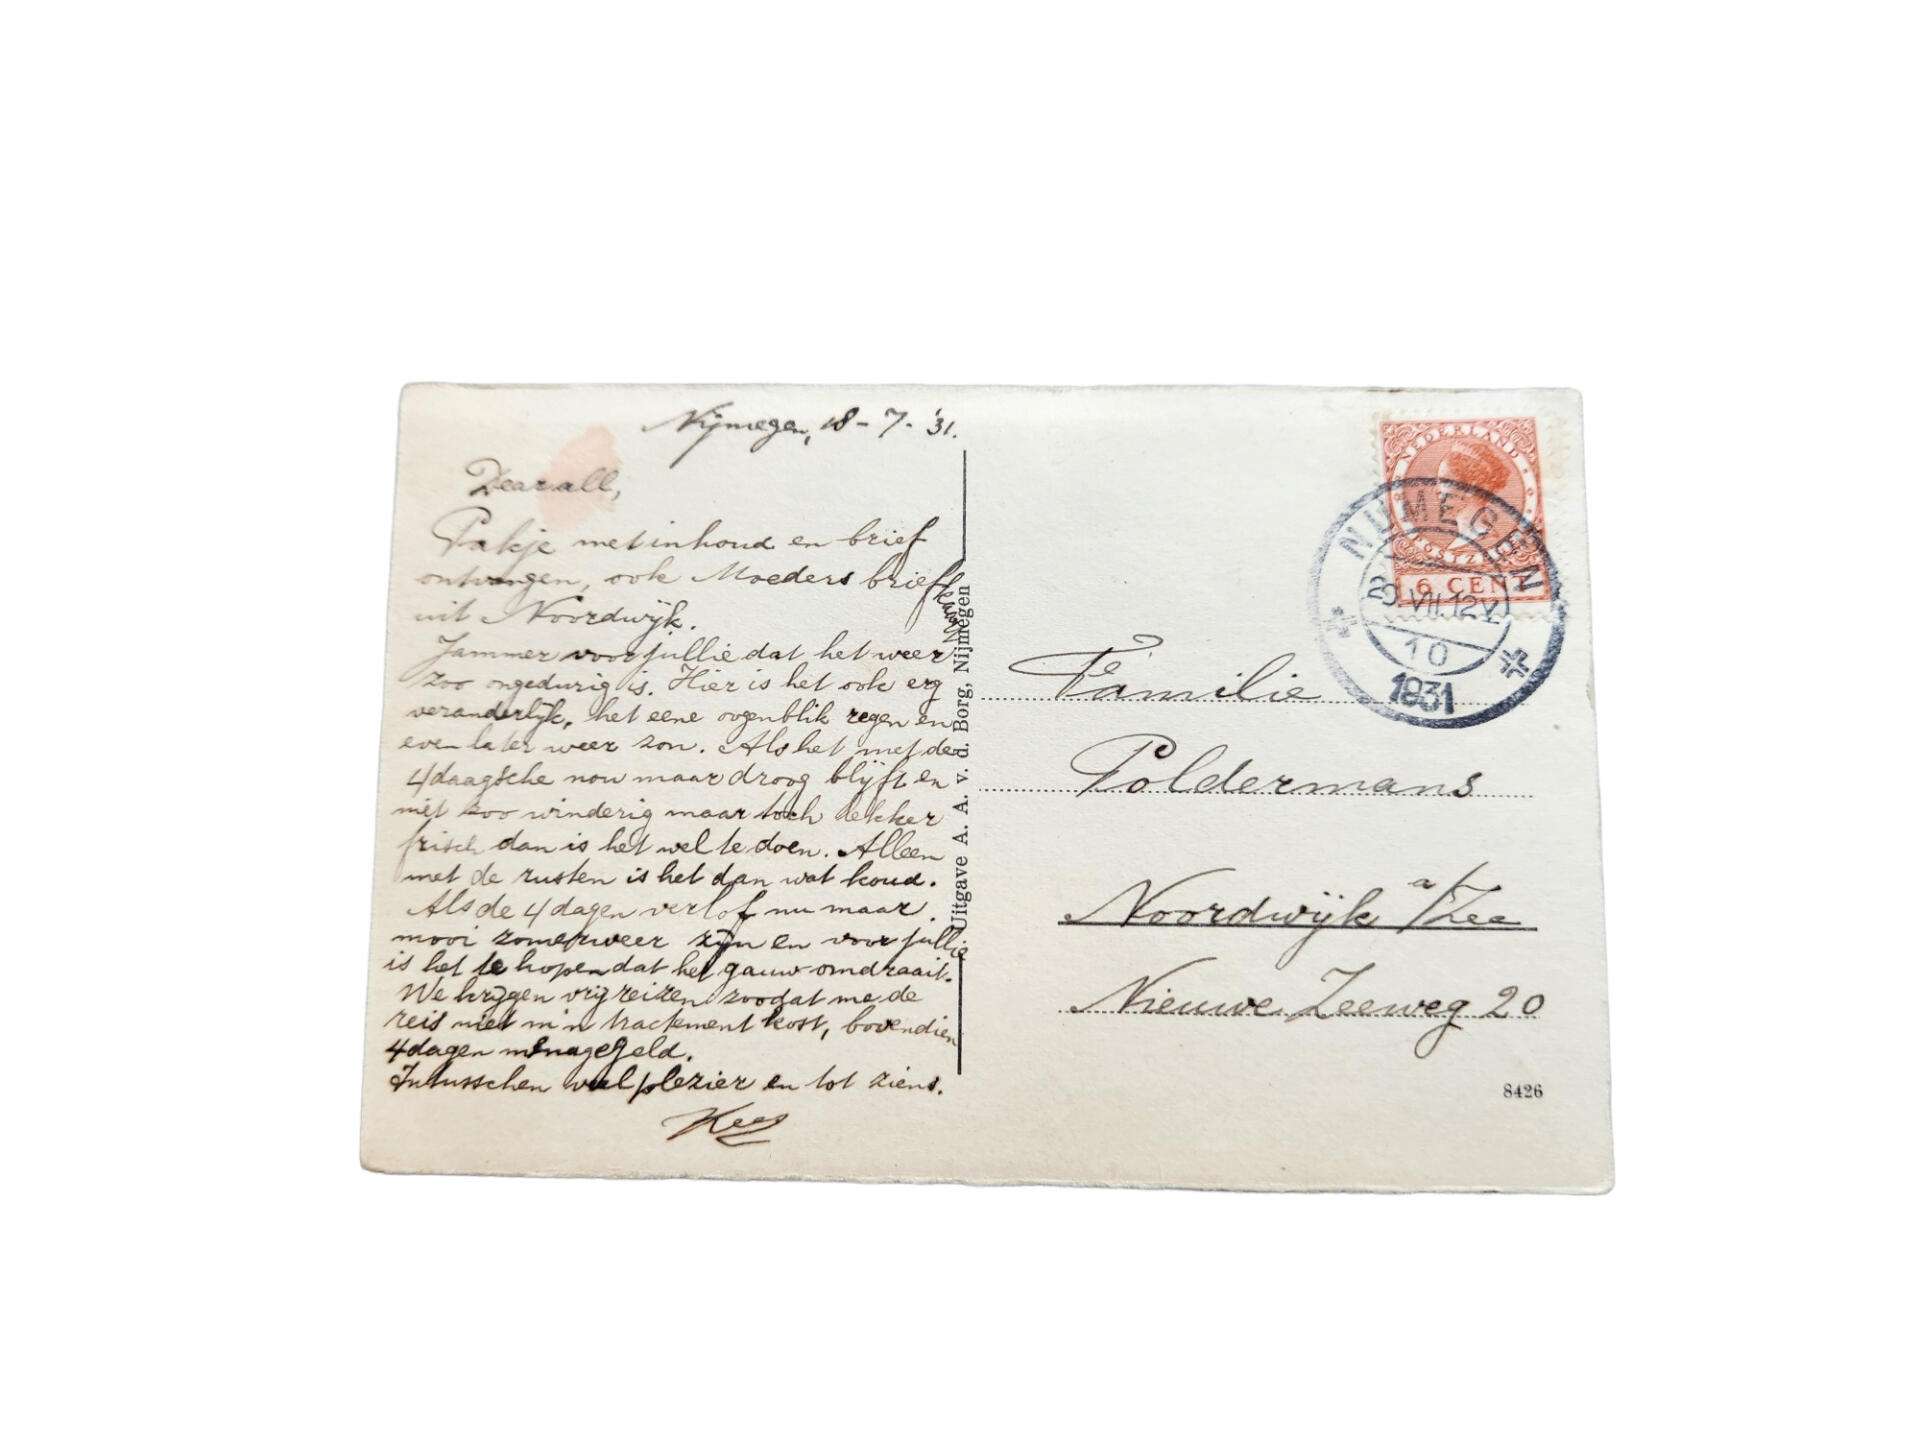 Nijmegen, 18-7-'31.
Dear all,
Pakje met inhoud en brief
ontvangen, ook Moeders brief
uit Noordwijk.
Jammer voor jullie dat het weer
zoo ongedurig is. Hier is het ook erg
veranderlijk, het eene oogenblik regen en
even later weer zon. Als het met de
4daagsche nou maar droog blijft en
niet zoo winderig maar toch lekker
frisch dan is het wel te doen. Alleen
met de rusten is het dan wat koud.
Als de 4 dagen verlof nu maar
mooi zomerweer zijn en voor jullie
is het te hopen dat het gauw omdraait.
We krijgen vrij reizen zoodat me de
reis niet m'n tractement kost, bovendien
4dagen menagegeld.
Intusschen veel plezier en tot ziens.
Kees
Uitgave A. A. v. d. Borg, Nijmegen
NEDERLAND
POSTZEGEL
6 CENT
NIJMEGEN
VII.12V
10
1931
Familie
Poldermans
Noordwijk a/Zee
Nieuwe Zeeweg 20
8426